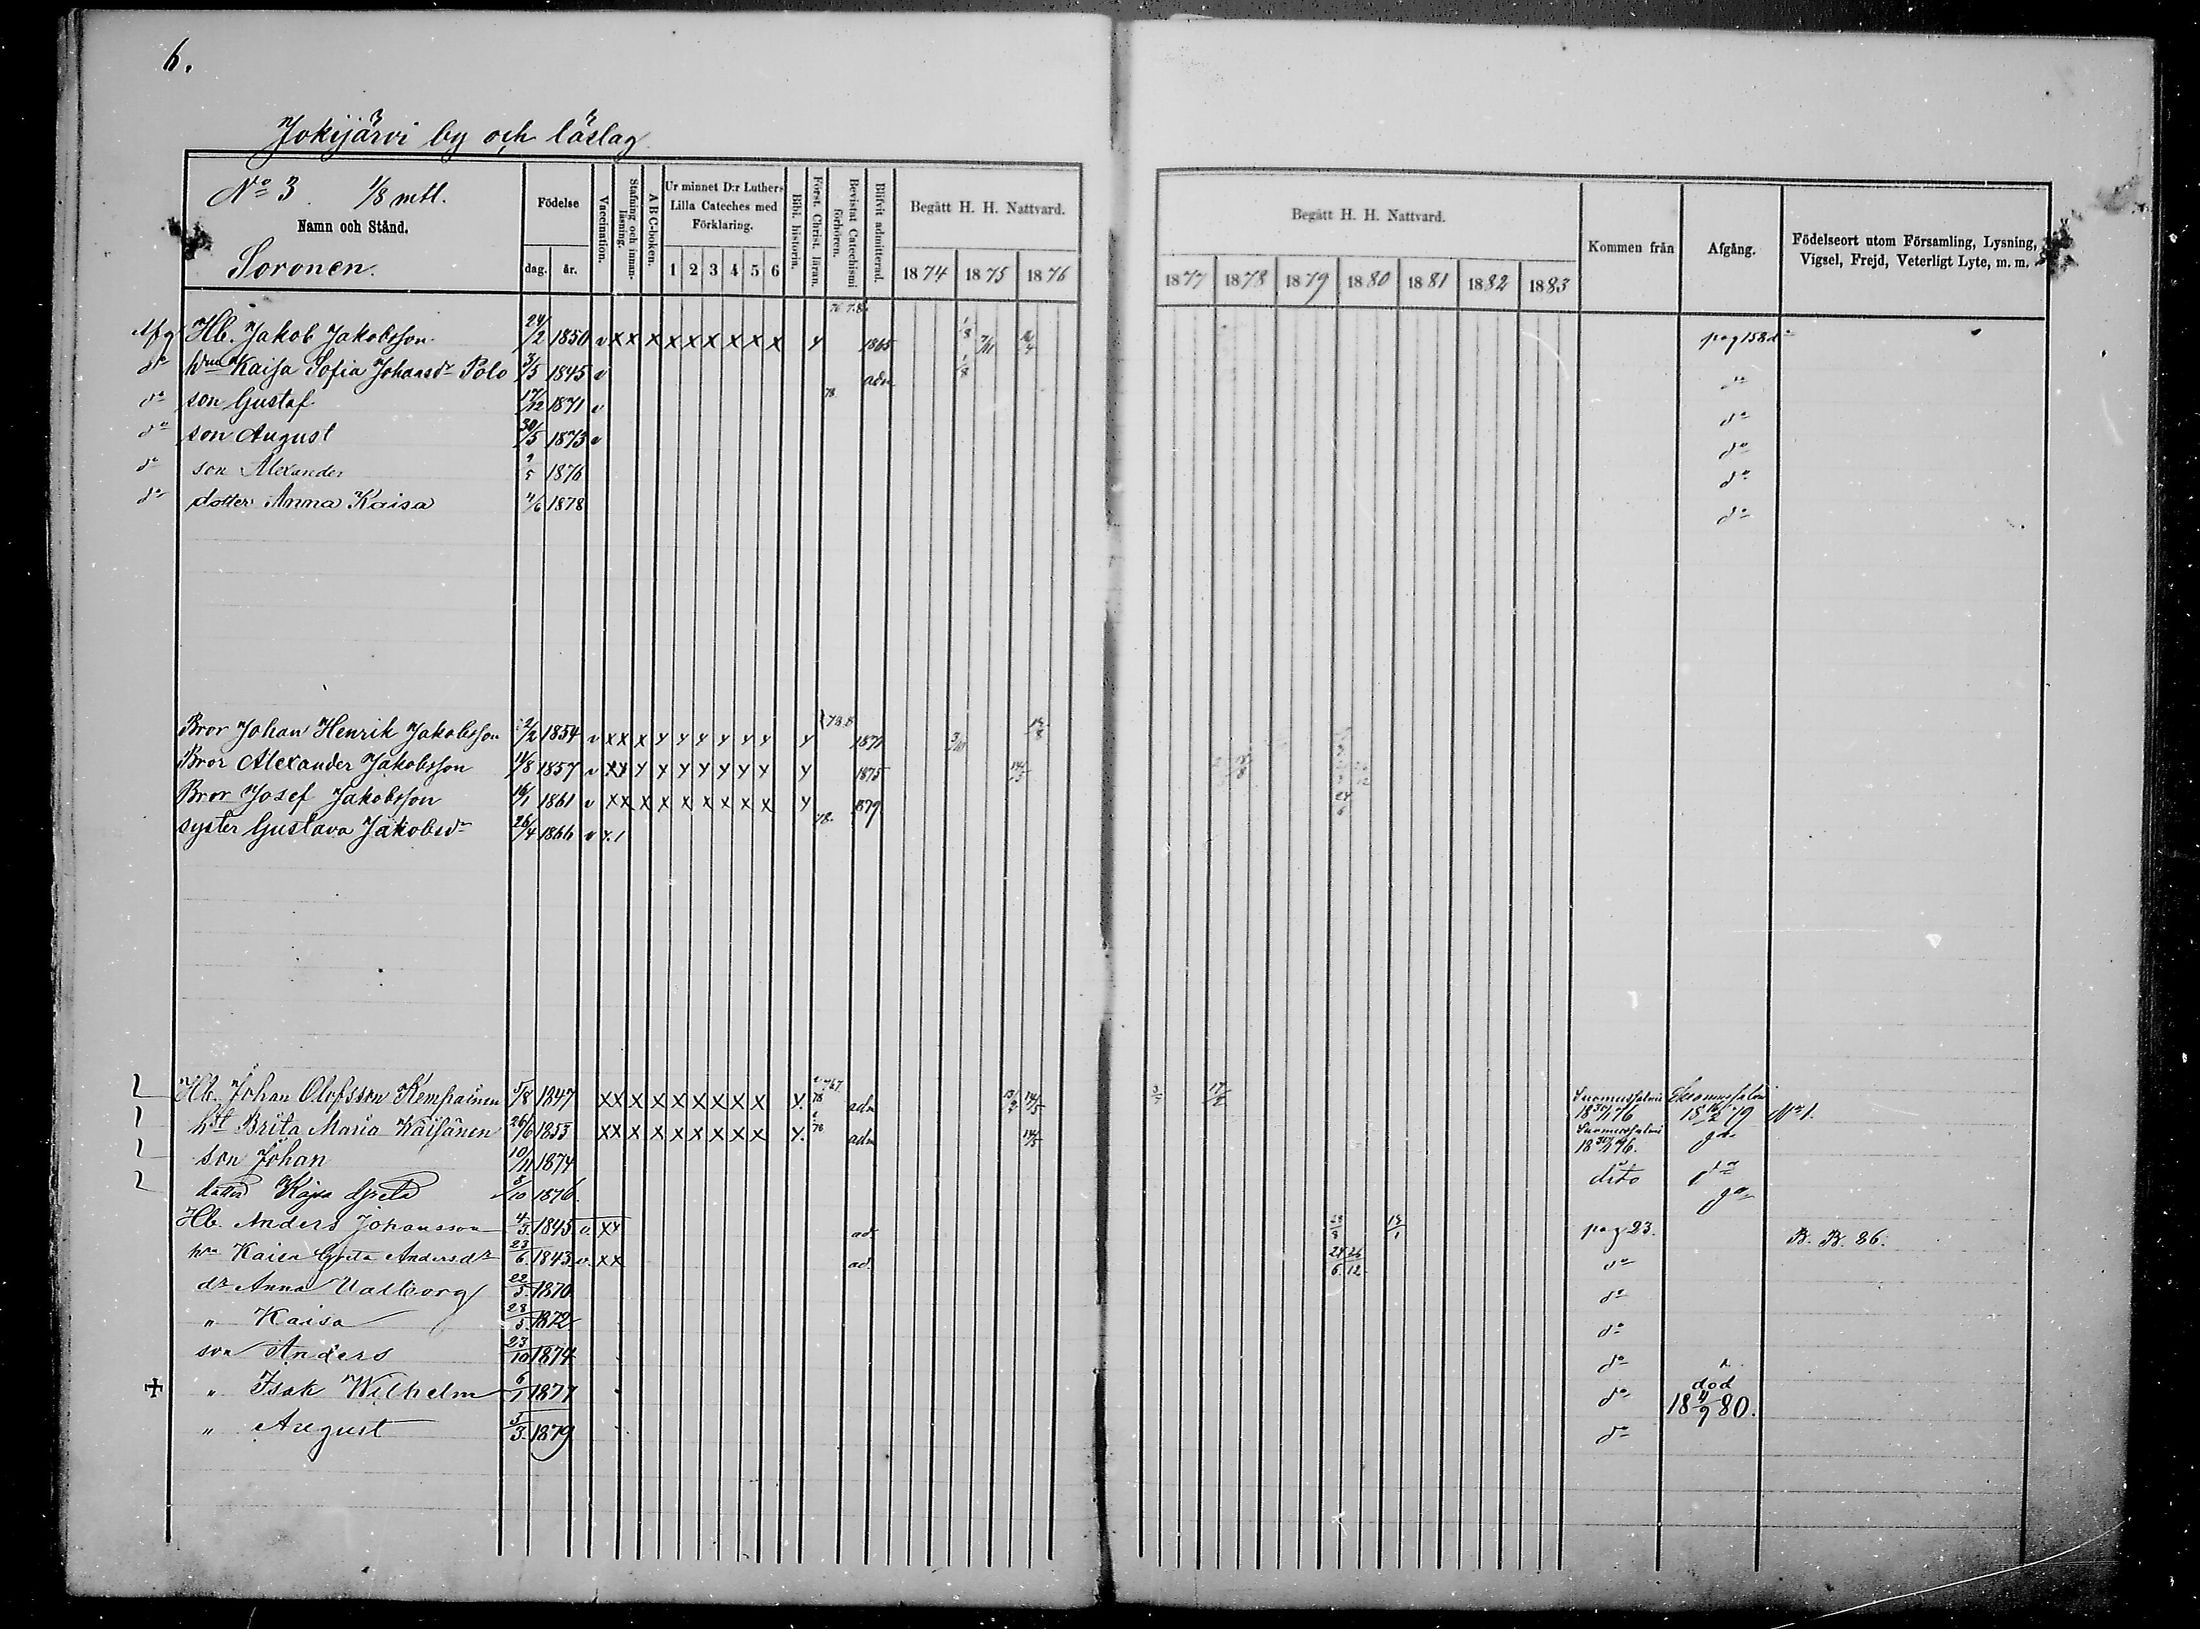 6.
Jokijärvi by och läslag
No 3 1/8 mtl.
Namn och Stånd.
Soronen.
Födelse
dag. år.
Vaccination.
Stafning och innan-läsning.
A B C-boken.
Ur minnet D:r Luthers Lilla Cateches med Förklaring.
1 2 3 4 5 6
Bibl. historia.
Först. Christ. läran.
Bevistat Catechismi förhören.
Blifvit admitterad.
Begått H. H. Nattvard.
1874 1875 1876
Begått H. H. Nattvard.
1877 1878 1879 1880 1881 1882 1883
Kommen från
Afgång.
Födelseort utom Församling, Lysning, Vigsel, Frejd, Veterligt Lyte, m. m.
Afg Hb. Jakob Jakobsson 24/2 1850 v x x x x x x x x x y 1865 1/8 pag 158
do Kaisa Sofia Johansdr Polo 3/5 1845 v adm 1/8 do
do son Gustaf 17/12 1871 v 78 do
do son August 30/5 1873 v do
do son Alexander 9/5 1876 do
do dotter Anna Kaisa 11/6 1878 do
Bror Johan Henrik Jakobsson 2/2 1854 v x x x y y y y y y y 1871 3/10
Bror Alexander Jakobsson 14/8 1857 v x x y y y y y y y y 1875 14/5
Bror Josef Jakobsson 16/1 1861 v x x x x x x x x x y 1879 24/6
syster Gustava Jakobsdr 26/4 1866 v 78.
Hb. Johan Olofsson Kempainen 5/8 1847 x x x x x x x x x y. adm 14/5 17/2 Suomussalmi 1876 Suomussalmi 1879 No 1.
Brita Maria Käisänen 26/6 1853 x x x x x x x x x y. 78 adm 14/5 Suomussalmi 1876.
son Johan 10/11 1874 dito do
dotter Kajsa Greta 8/10 1876.
Hb. Anders Johansson 4/3 1845 v. x x ad. pag 23. B. B. 86.
Kaisa Greta Andersdr 23/6 1843 v. x x ad. 24/6 26/12 do
dr Anna Valborg 22/5 1870 do
" Kaisa 28/5 1872 do
son Anders 23/10 1874 do
" Isak Wilhelm 6/1 1877 do död 18 11/9 80.
" August 5/3 1879 do